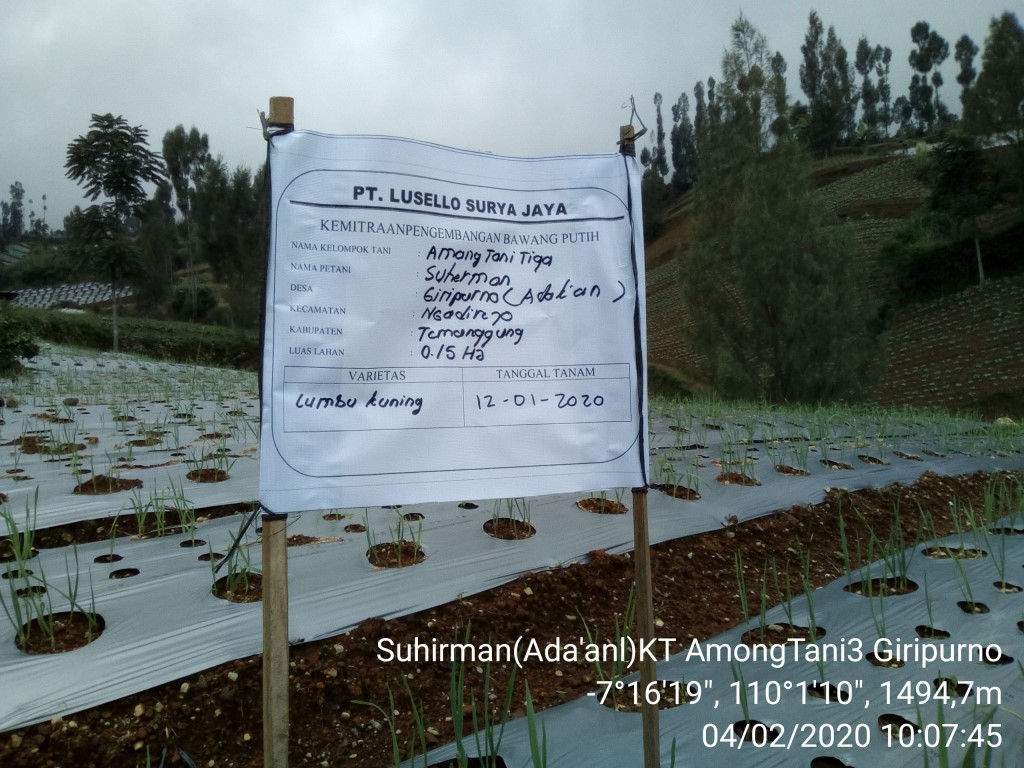 PT. LUSELLO SURYA JAYA
KEMITRAANPENGEMBANGAN BAWANG PUTIH
NAMA KELOMPOK TANI : Among Tani Tiga
NAMA PETANI : Suherman
DESA : Giripurno (Ada'an)
KECAMATAN : Ngadirejo
KABUPATEN : Temanggung
LUAS LAHAN : 0.15 Ha
VARIETAS TANGGAL TANAM
Lumbu kuning 12-01-2020
Suhirman(Ada'anl)KT AmongTani3 Giripurno
-7°16'19", 110°1'10", 1494,7m
04/02/2020 10:07:45